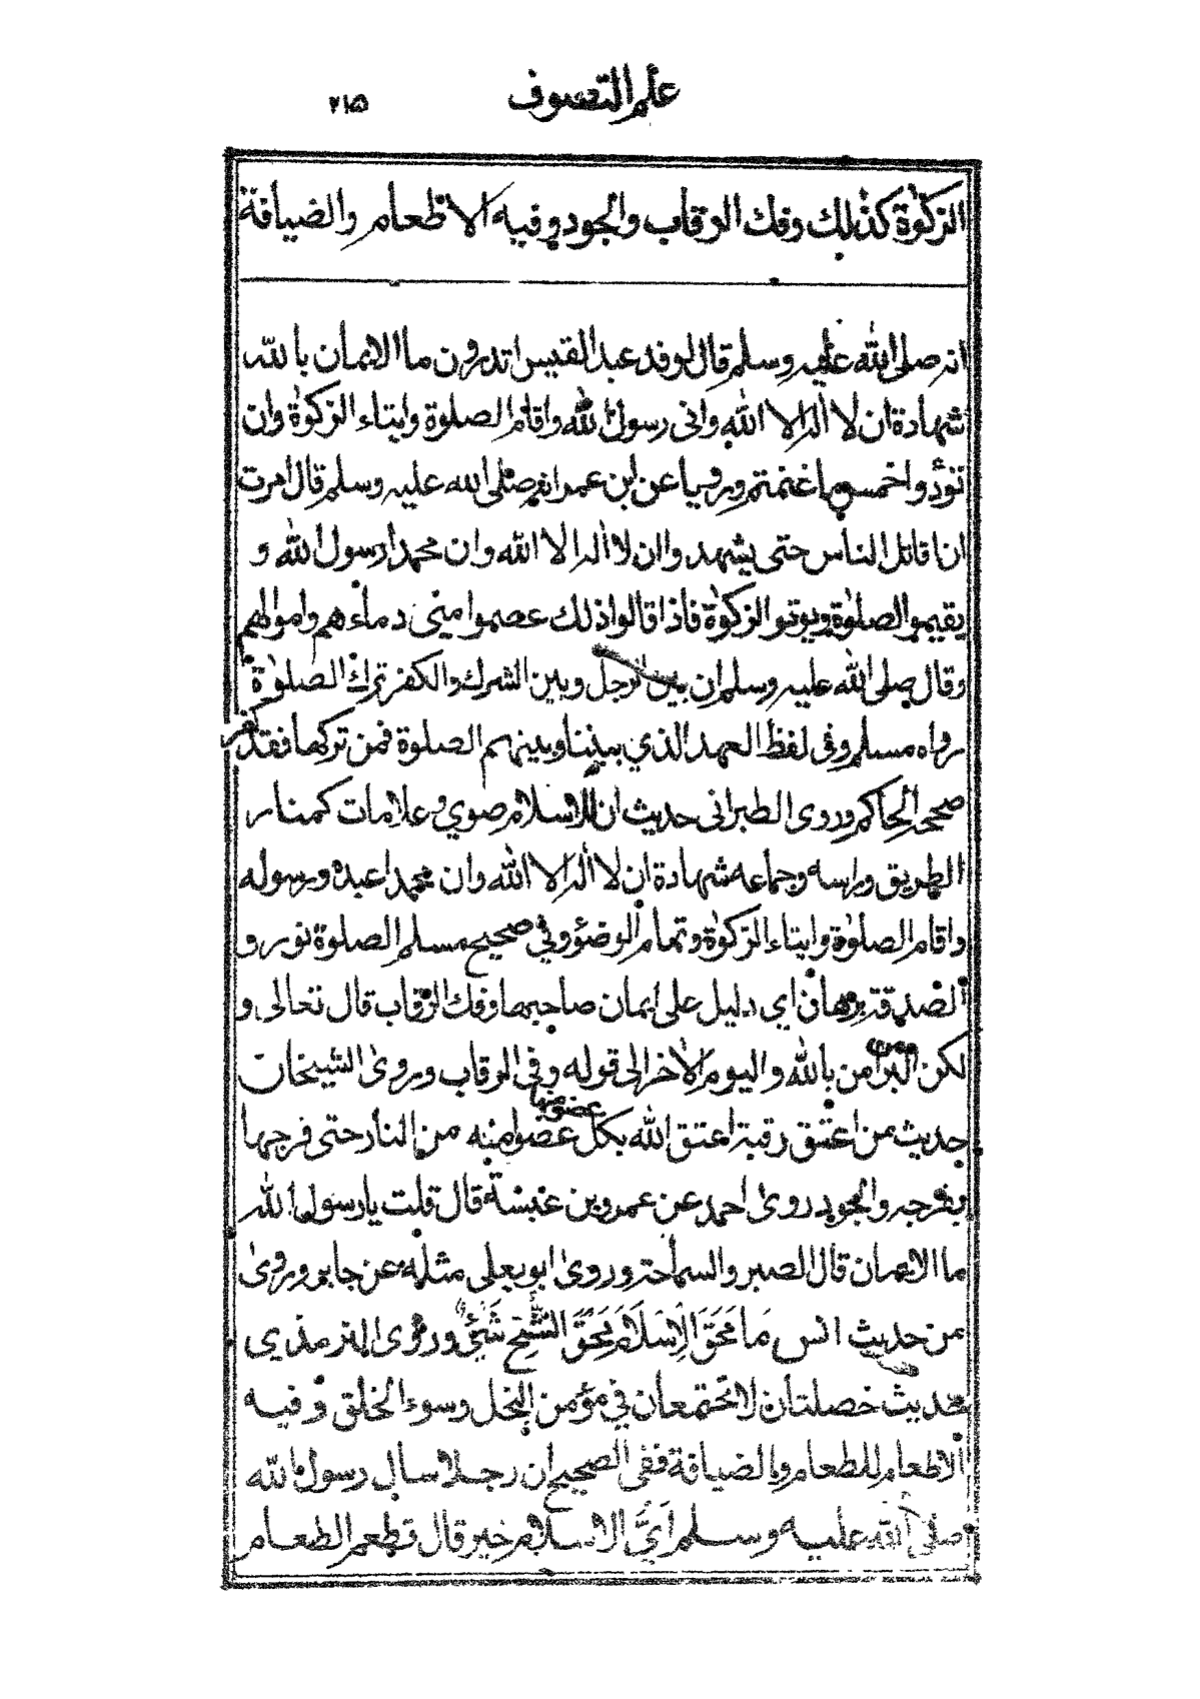 علم التصوف ٢١٥
الزكوٰة كذٰلك وفك الرقاب والجود وفيه الاطعام والضيافة
انه صلى الله عليه وسلم قال لوفد عبد القيس اتدرون ما الايمان بالله
شهادة ان لا اله الا الله وانى رسول الله واقام الصلوة وايتاء الزكوٰة وان
تؤدوا خمس ما غنمتم وروٰيا عن ابن عمر انه صلى الله عليه وسلم قال امرت
ان اقاتل الناس حتى يشهدوا ان لا اله الا الله وان محمدا رسول الله و
يقيموا الصلوٰة ويوتوا الزكوٰة فاذا قالوا ذلك عصموا منى دماءهم واموالهم
وقال صلى الله عليه وسلم ان بين الرجل وبين الشرك والكفر ترك الصلوٰة
رواه مسلم وفى لفظ العهد الذي بيننا وبينهم الصلوة فمن تركها فقد كفر
صححه الحاكم وروى الطبرانى حديث ان للاسلام صوي وعلامات كمنار
الطريق وراسه وجماعه شهادة ان لا اله الا الله وان محمدا عبده ورسوله
واقام الصلوٰة وايتاء الزكوٰة وتمام الوضؤ وفي صحيح مسلم الصلوٰة نور و
الصدقة برهان اي دليل على ايمان صاحبها وفك الرقاب قال تعالى و
لكن البر من اٰمن بالله واليوم الاٰخر الى قوله وفى الرقاب وروىٰ الشيخان
حديث من اعتق رقبة اعتق الله بكل عضو منها عضوا منه من النار حتى فرجها
بفرجه والجود روىٰ احمد عن عمرو بن عنبسة قال قلت يا رسول الله
ما الايمان قال الصبر والسماحة وروىٰ ابو يعلى مثله عن جابر وروىٰ
من حديث انس مَا مَحَقَ الْاِسْلَامَ مَحَقَ الشُّحِّ شَيْئٌ وروىٰ الترمذي
حديث خصلتان لا تجتمعان في مؤمن البخل وسوء الخلق وفيه
الاطعام للطعام والضيافة ففى الصحيح ان رجلا سال رسول الله
صلى الله عليه وسلم اَيُّ الاسلام خير قال تطعم الطعام